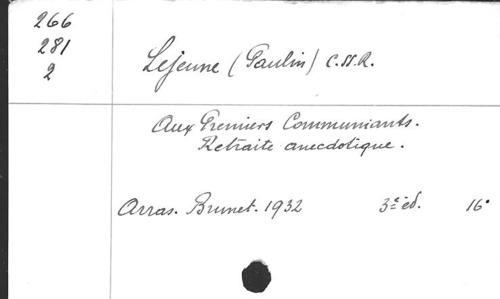 266
281
2
Lejeune (Paulin) C.SS.R.
Aux Premiers Communiants.
Retraite anecdotique.
Arras. Brunet. 1932 3e éd. 16°